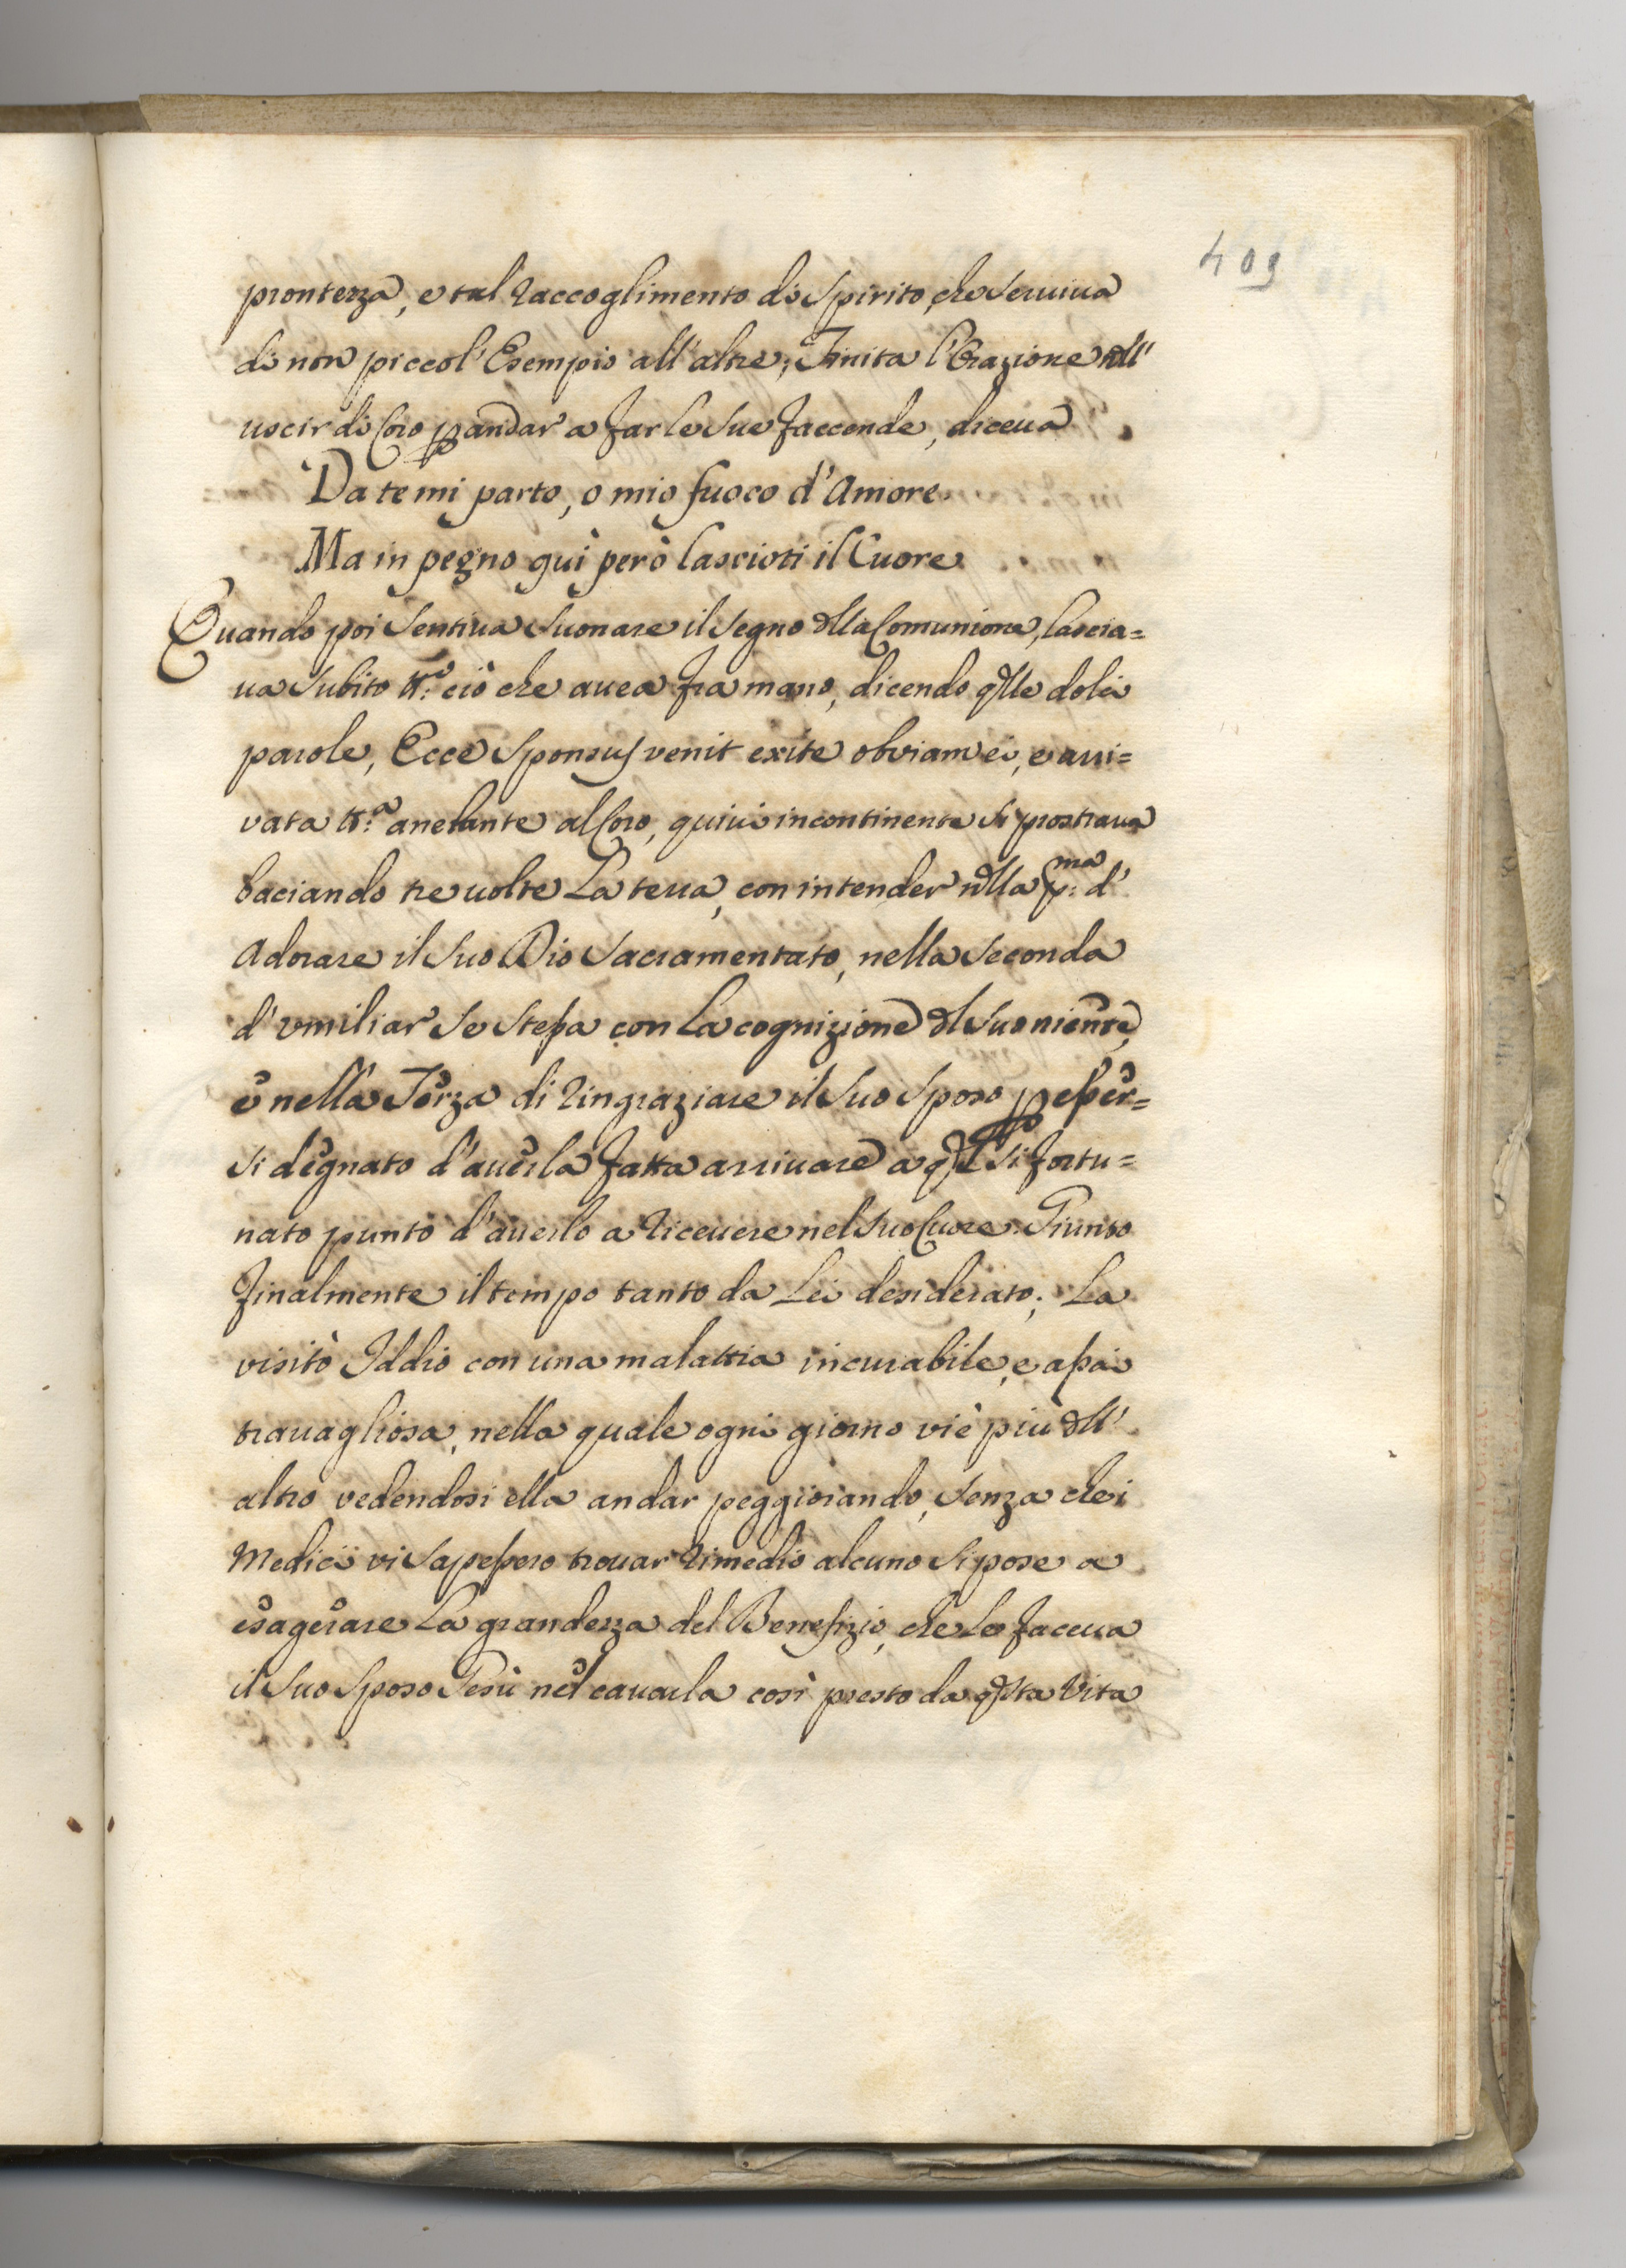 409
prontezza, e tal raccoglimento di Spirito, che Seruiua
di non piccol' Esempio all'altre; Finita l'Orazione nell'
uscir di Coro p andar a far le Sue faccende, diceua
Da te mi parto, o mio fuoco d'Amore.
Ma in pegno quì però lascioti il Cuore.
Quando poi Sentiua Suonare il Segno dlla Comunione, lascia=
ua Subito tt.º ciò che auea fra mano, dicendo qlle dolci
parole, Ecce Sponsus venit exite obviam ei, e arri=
vata tt.ª anelante al Coro, quiui incontinente si prostraua
baciando tre uolte La terra, con intender nlla p:ma d'
Adorare il Suo Dio Sacramentato, nella Seconda
d'vmiliar Se Stessa con La cognizione dl Suo niente,
e nella Terza di ringraziare il Suo Sposo p esser=
si degnato d'auerla fatta arriuare a ql Sì fortu=
nato punto d'auerlo a riceuere nel Suo Cuore. Giunto
finalmente il tempo tanto da Lei desiderato; La
visitò Iddio con una malattia incurabile, e assai
trauagliosa, nella quale ogni giorno viè più dll'
altro vedendosi ella andar peggiorando, Senza che i
Medici vi Sapessero trouar rimedio alcuno Si pose a
esagerare La grandezza del Benefizio, che Le faceua
il Suo Sposo Gesù nel cauarla così presto da qsta Vita